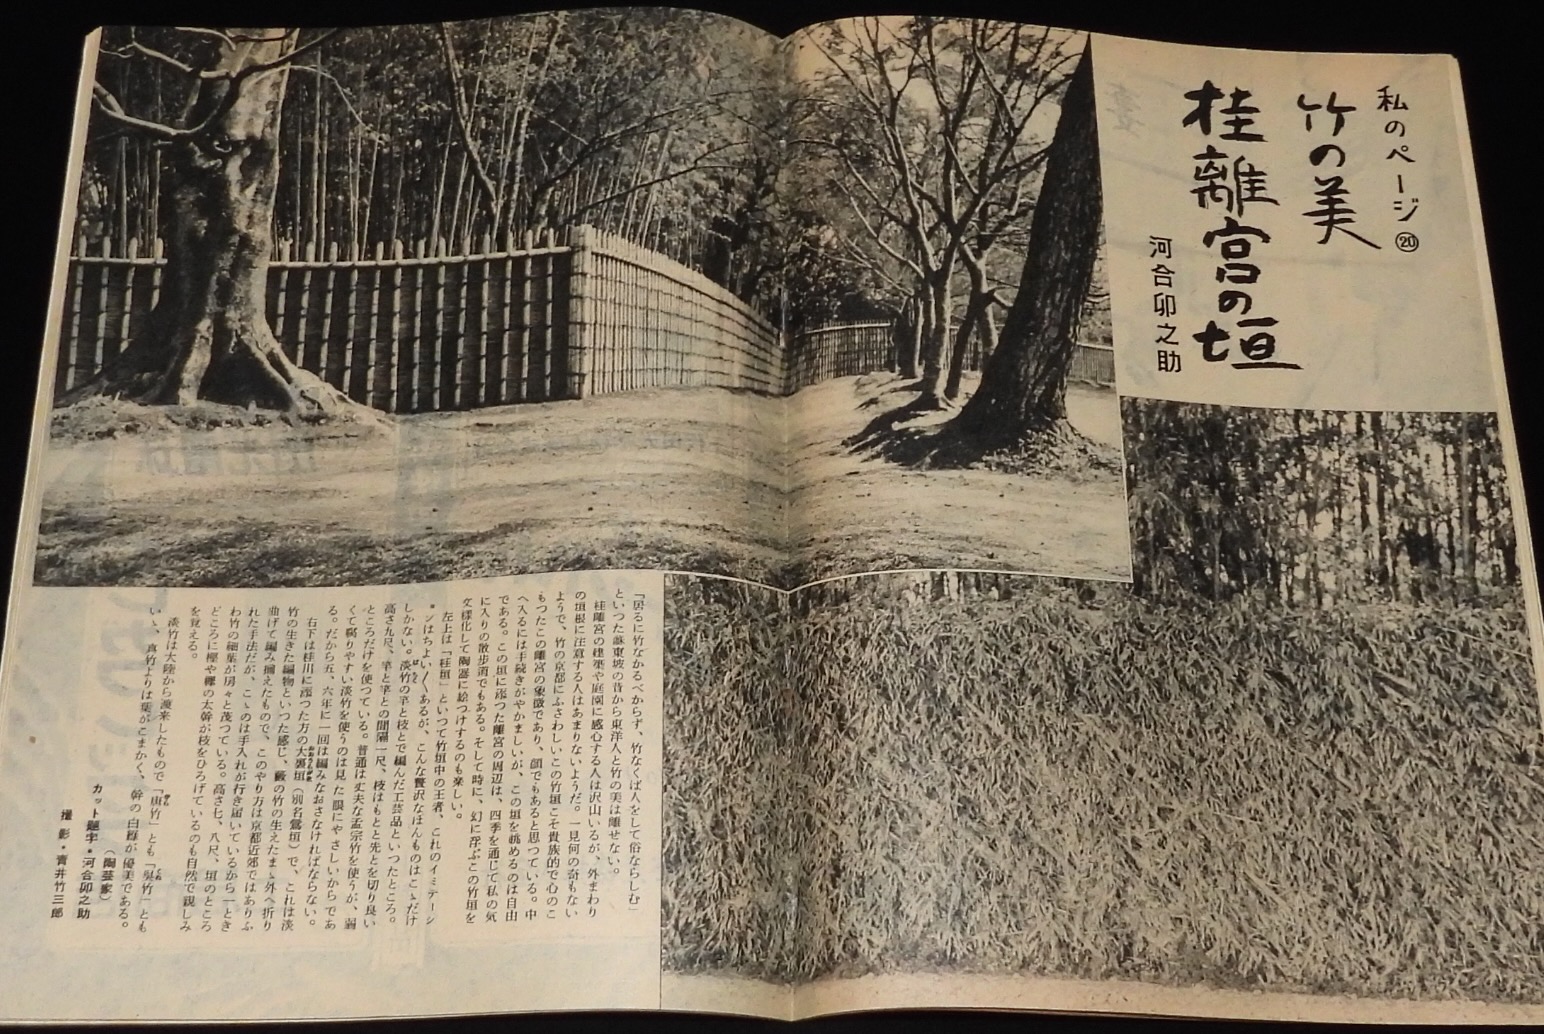 私のページ⑳
竹の美
桂離宮の垣
河合卯之助
「居るに竹なかるべからず、竹なくば人をして俗ならしむ」
といつた蘇東坡の昔から東洋人と竹の美は離せない。
桂離宮の建築や庭園に感心する人は沢山いるが、外まわり
の垣根に注意する人はあまりないようだ。一見何の奇もない
ようで、竹の京都にふさわしいこの竹垣こそ貴族的で心のこ
もつたこの離宮の象徴であり、顔でもあると思つている。中
へ入るには手続きがやかましいが、この垣を眺めるのは自由
である。この垣に添つた離宮の周辺は、四季を通じて私の気
に入りの散歩道でもある。そして時に、幻に浮ぶこの竹垣を
文様化して陶器に絵つけするのも楽しい。
左上は「桂垣」といつて竹垣中の王者、これのイミテーシ
ョンはちよい〱あるが、こんな贅沢なほんものはこゝだけ
しかない。淡竹の竿と枝とで編んだ工芸品といつたところ。
高さ九尺、竿と竿との間隔一尺、枝はもとと先とを切り良い
ところだけを使つている。普通は丈夫な孟宗竹を使うが、弱
くて腐りやすい淡竹を使うのは見た眼にやさしいからであ
る。だから五、六年に一回は編みなおさなければならない。
右下は桂川に添つた方の大裏垣（別名鶯垣）で、これは淡
竹の生きた編物といつた感じ、藪の竹の生えたまゝ外へ折り
曲げて編み揃えたもので、このやり方は京都近郊ではありふ
れた手法だが、こゝのは手入れが行き届いているから、とき
わ竹の細葉が房々と茂つている。高さ七、八尺、垣のところ
どころに樫や欅の太幹が枝をひろげているのも自然で親しみ
を覚える。
淡竹は大陸から渡来したもので「唐竹」とも「呉竹」とも
いゝ、真竹よりは葉がこまかく、幹の白群が優美である。
（陶芸家）
カット題字・河合卯之助
撮影・青井竹三郎